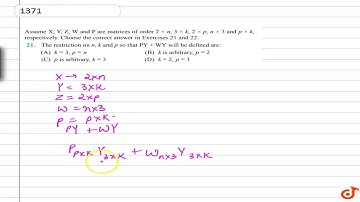 1371
Assume X, Y, Z, W and P are matrices of order 2 × n, 3 × k, 2 × p, n × 3 and p × k,
respectively. Choose the correct answer in Exercises 21 and 22.
21. The restriction on n, k and p so that PY + WY will be defined are:
(A) k = 3, p = n (B) k is arbitrary, p = 2
(C) p is arbitrary, k = 3 (D) k = 2, p = 3
X → 2xn
Y = 3xK
Z = 2xp
W = nx3
P = pxK.
PY + WY
P pxK Y 3xK + W nx3 Y 3xK